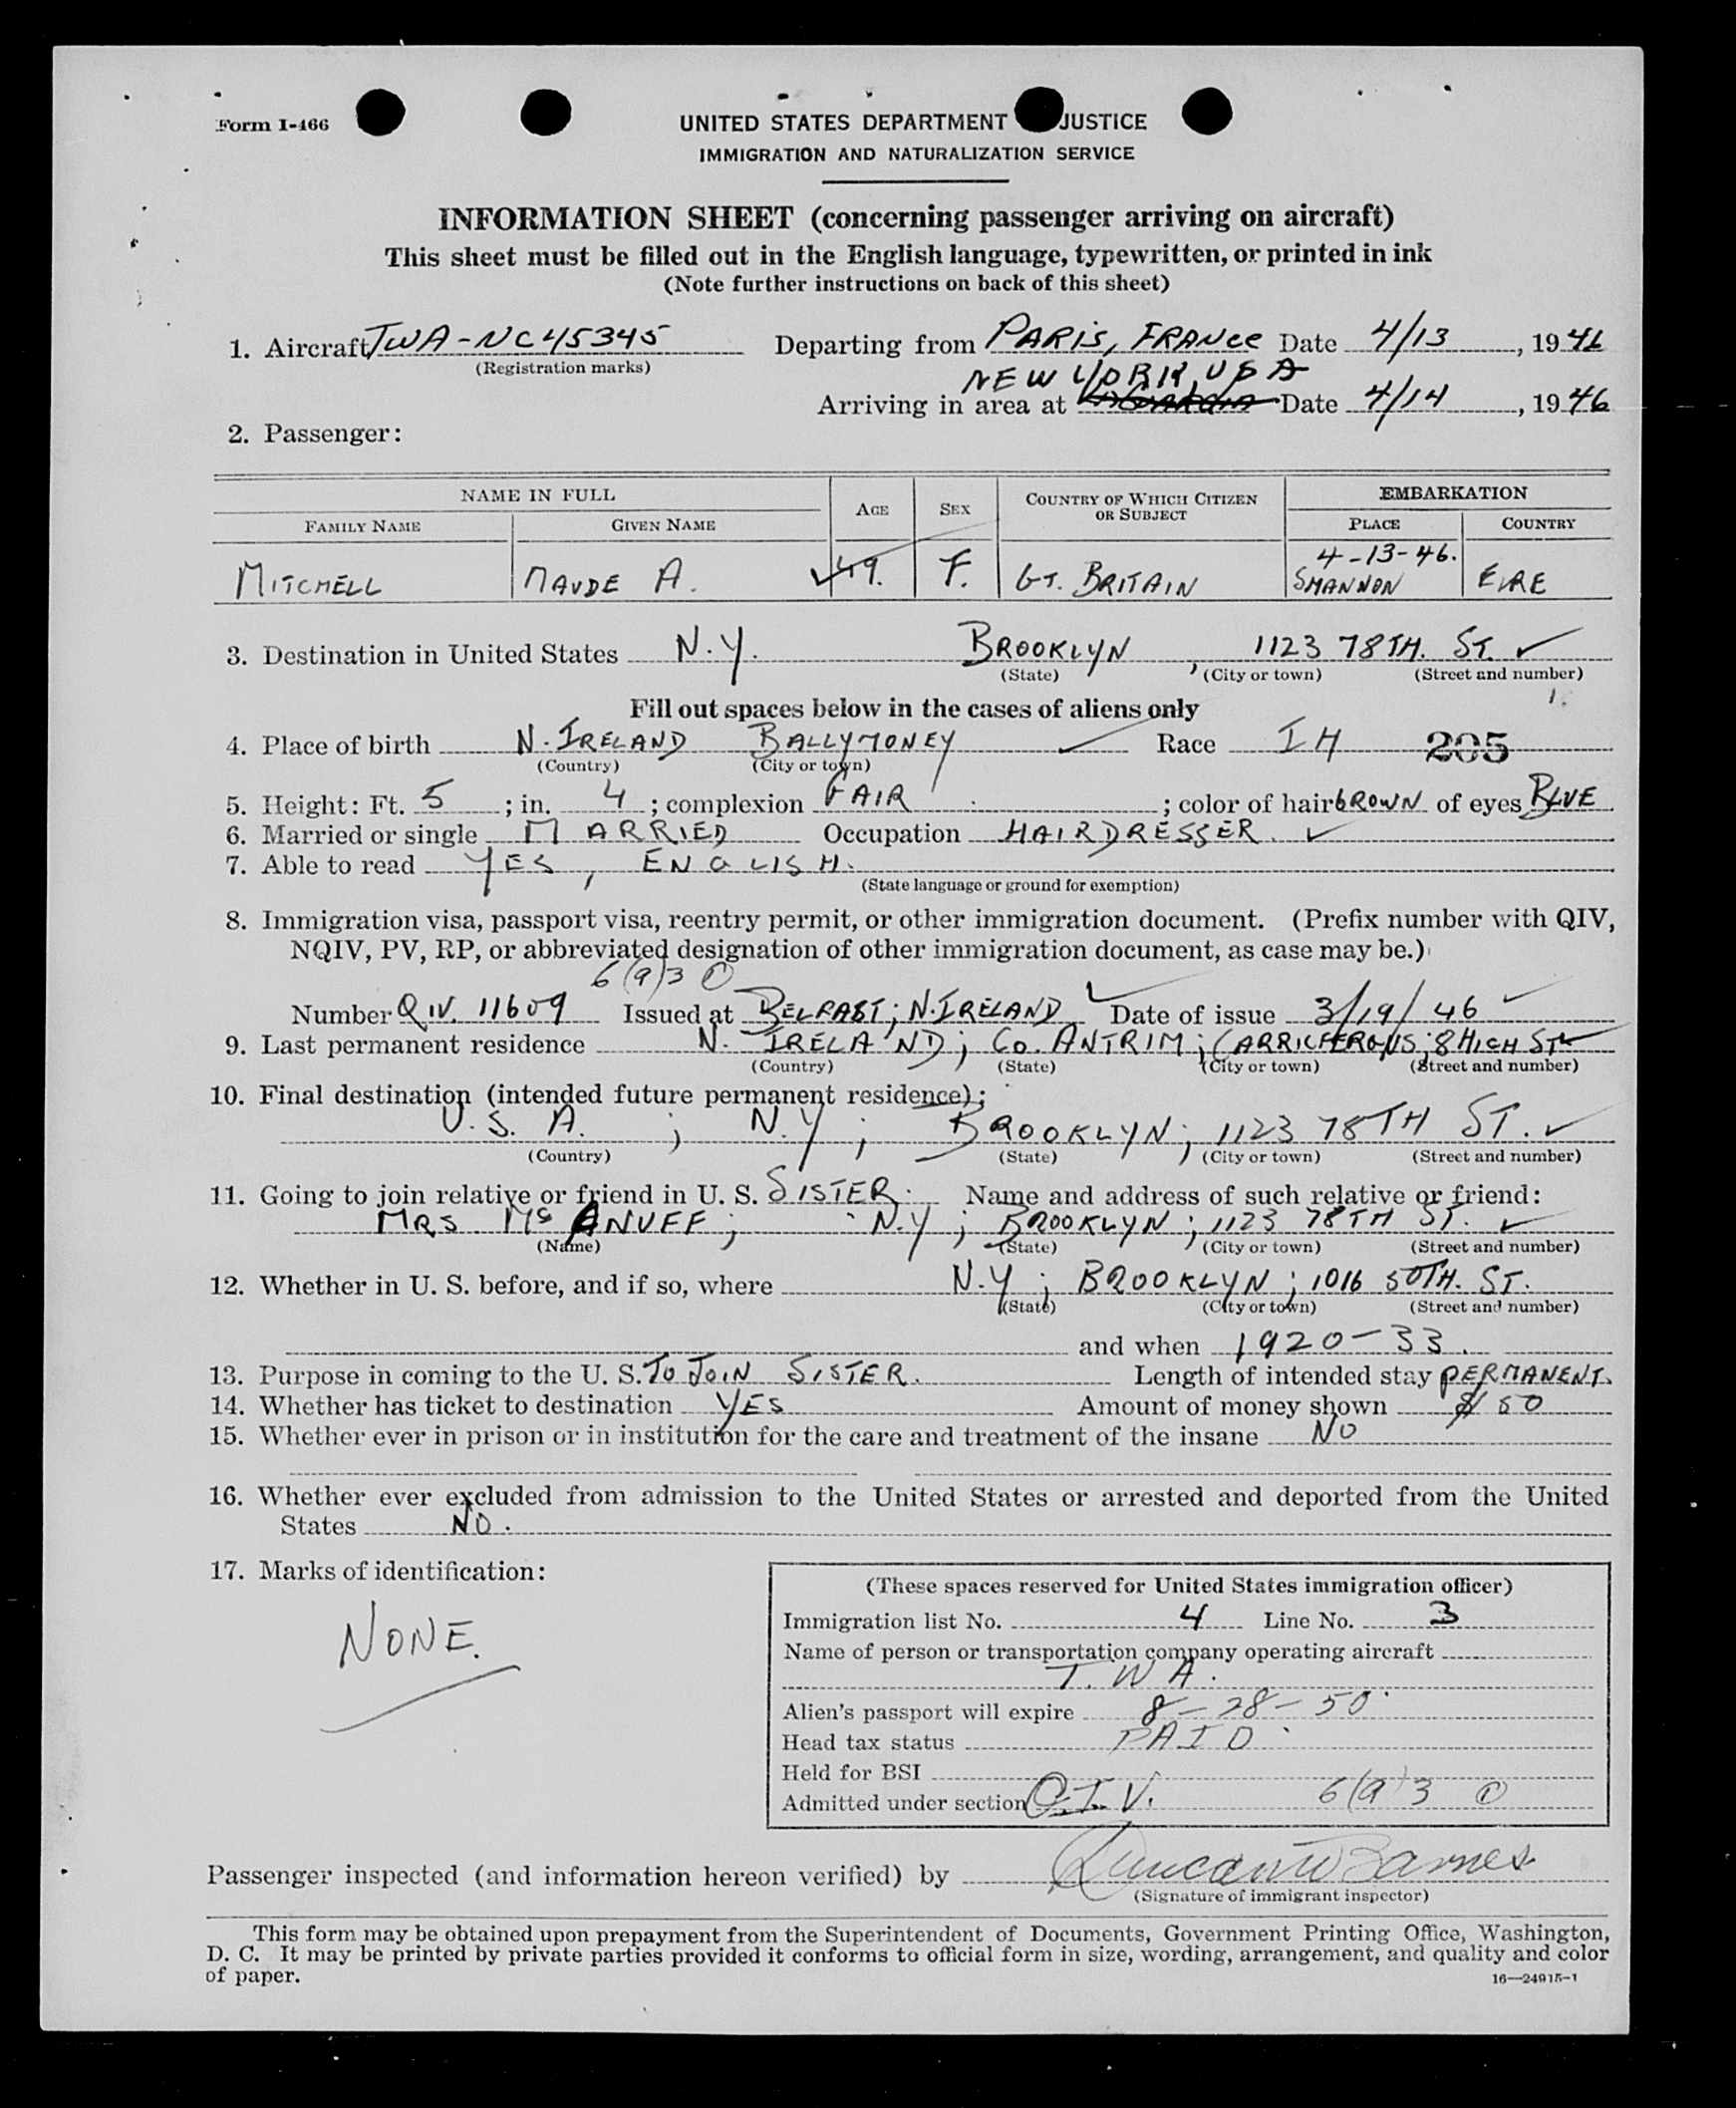 Form I-466
UNITED STATES DEPARTMENT JUSTICE
IMMIGRATION AND NATURALIZATION SERVICE
INFORMATION SHEET (concerning passenger arriving on aircraft)
This sheet must be filled out in the English language, typewritten, or printed in ink
(Note further instructions on back of this sheet)
1. Aircraft TWA-NC45345 Departing from PARIS, FRANCE Date 4/13, 1946
(Registration marks)
NEW YORK, USA
Arriving in area at Date 4/14, 1946
2. Passenger:
NAME IN FULL AGE SEX COUNTRY OF WHICH CITIZEN OR SUBJECT EMBARKATION
FAMILY NAME GIVEN NAME PLACE COUNTRY
4-13-46.
MITCHELL MAUDE A. 49. F. GT. BRITAIN SHANNON EIRE
3. Destination in United States N.Y. BROOKLYN, 1123 78TH. ST.
(State) (City or town) (Street and number)
Fill out spaces below in the cases of aliens only
4. Place of birth N. IRELAND BALLYMONEY Race IH 205
(Country) (City or town)
5. Height: Ft. 5; in. 4; complexion FAIR; color of hair BROWN of eyes BLUE
6. Married or single MARRIED Occupation HAIRDRESSER.
7. Able to read YES, ENGLISH.
(State language or ground for exemption)
8. Immigration visa, passport visa, reentry permit, or other immigration document. (Prefix number with QIV,
NQIV, PV, RP, or abbreviated designation of other immigration document, as case may be.)
6(a)3
Number QIV. 11609 Issued at BELFAST; N. IRELAND Date of issue 3/19/46
9. Last permanent residence N. IRELAND; CO. ANTRIM; CARRICFERGUS; 8 HIGH ST
(Country) (State) (City or town) (Street and number)
10. Final destination (intended future permanent residence):
U.S.A.; N.Y; BROOKLYN; 1123 78TH ST.
(Country) (State) (City or town) (Street and number)
11. Going to join relative or friend in U. S. SISTER. Name and address of such relative or friend:
MRS Mc ANUFF; N.Y; BROOKLYN; 1123 78TH ST.
(Name) (State) (City or town) (Street and number)
12. Whether in U. S. before, and if so, where N.Y; BROOKLYN; 1016 50TH. ST.
(State) (City or town) (Street and number)
and when 1920-33.
13. Purpose in coming to the U. S. TO JOIN SISTER. Length of intended stay PERMANENT.
14. Whether has ticket to destination YES Amount of money shown $50
15. Whether ever in prison or in institution for the care and treatment of the insane NO
16. Whether ever excluded from admission to the United States or arrested and deported from the United
States NO.
17. Marks of identification:
NONE.
(These spaces reserved for United States immigration officer)
Immigration list No. 4 Line No. 3
Name of person or transportation company operating aircraft
T.W.A.
Alien's passport will expire 8-28-50
Head tax status PAID
Held for BSI
Admitted under section Q.I.V. 6(a)3
Passenger inspected (and information hereon verified) by Duncan W Barnes
(Signature of immigrant inspector)
This form may be obtained upon prepayment from the Superintendent of Documents, Government Printing Office, Washington,
D. C. It may be printed by private parties provided it conforms to official form in size, wording, arrangement, and quality and color
of paper.
16—24915-1